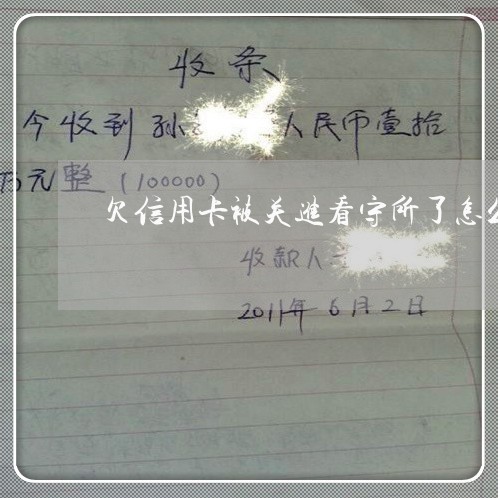 收条
今收到孙 人民币壹拾
万元整(100000)
欠信用卡被关进看守所了怎么
收款人
2011年6月2日